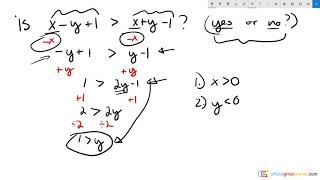 Is x-y+1 > x+y-1? (yes or no?)
-x -x
-y+1 > y-1
+y +y
1 > 2y-1
+1 +1
2 > 2y
÷2 ÷2
1 > y
1.) x>0
2.) y<0